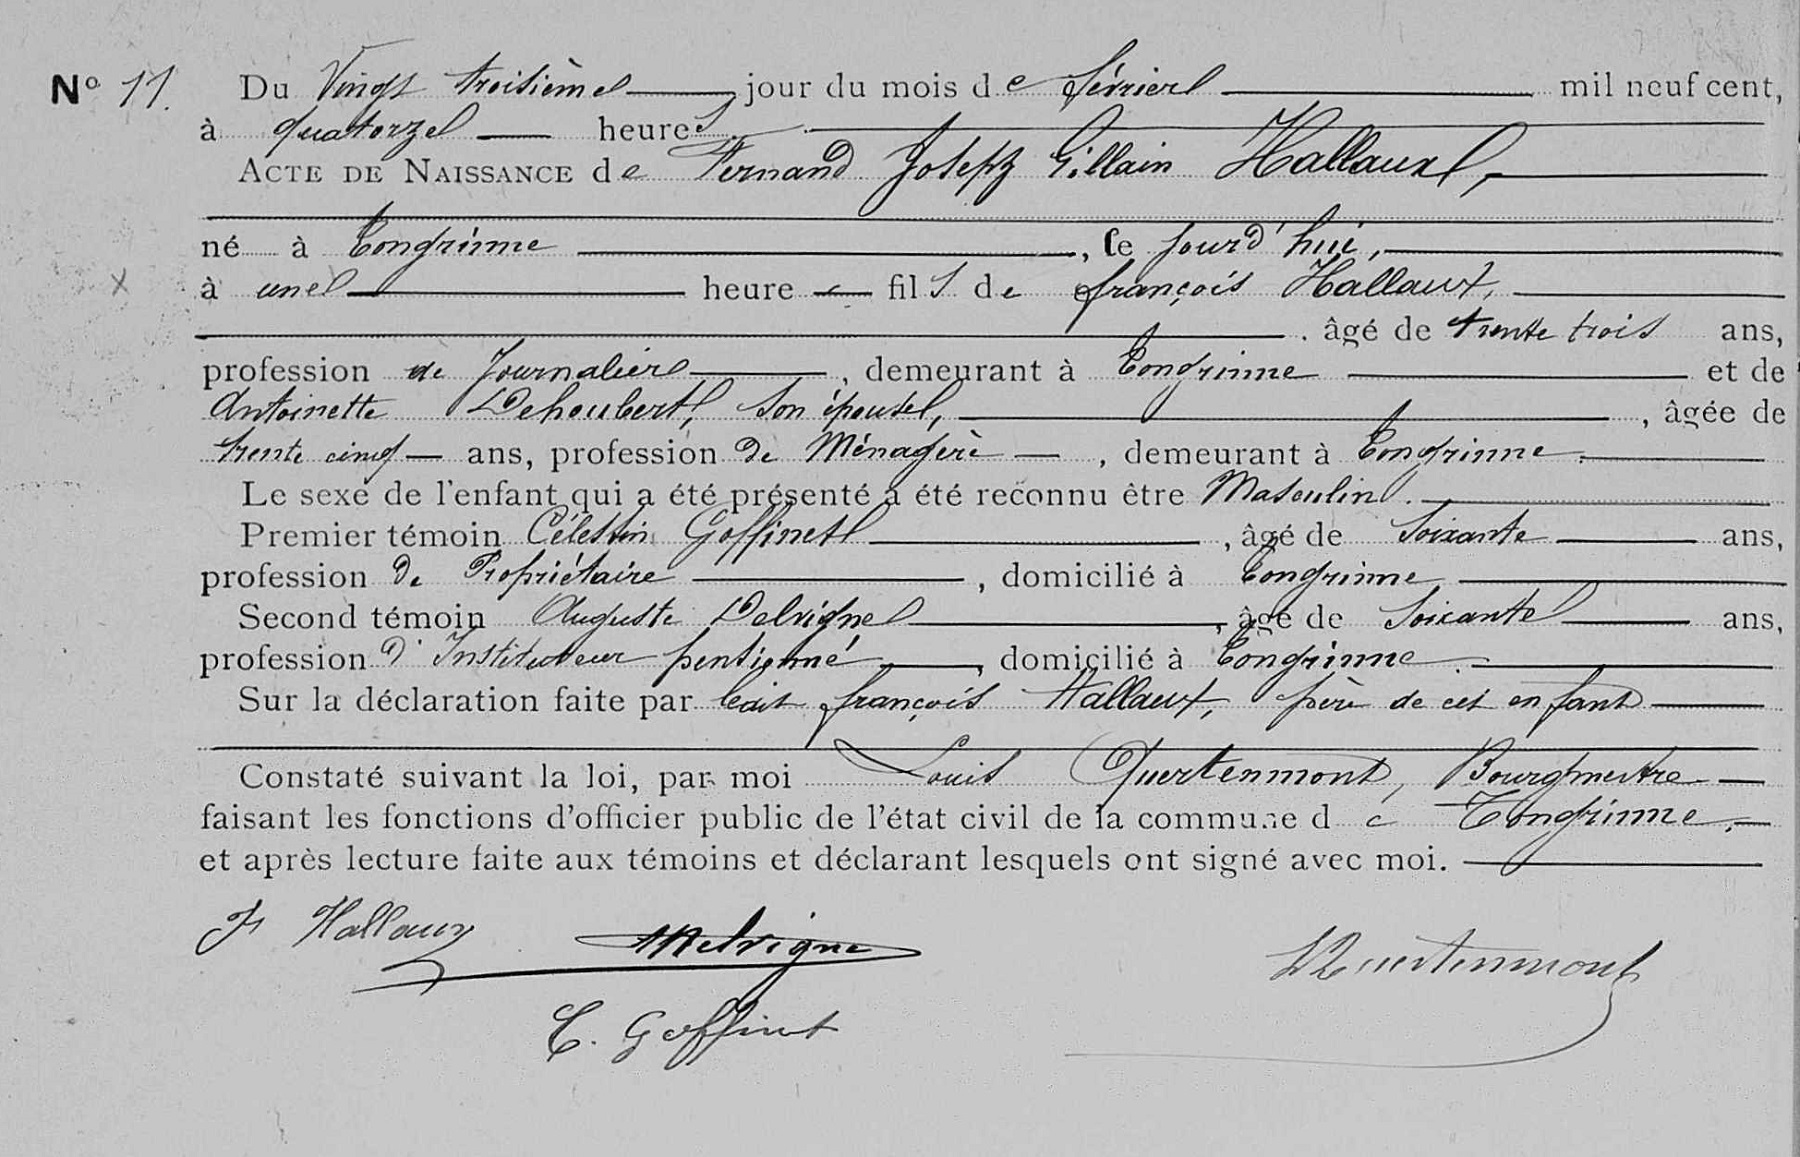 N° 11. Du Vingt troisième jour du mois de février mil neuf cent,
à quatorze heures
ACTE DE NAISSANCE de Fernand Joseph Gillain Hallaux,
né à Tongrinne, le jourd'hui,
à une heure fils de françois Hallaux,
âgé de trente trois ans,
profession de Journalier, demeurant à Tongrinne et de
Antoinette Dehoubert, son épouse, âgée de
trente cinq ans, profession de Ménagère, demeurant à Tongrinne.
Le sexe de l'enfant qui a été présenté a été reconnu être Masculin.
Premier témoin Célestin Goffinet, âgé de Soixante ans,
profession de Propriétaire, domicilié à Tongrinne
Second témoin Auguste Delvigne, âgé de Soixante ans,
profession d'Instituteur pensionné, domicilié à Tongrinne.
Sur la déclaration faite par françois Hallaux, père de cet enfant
Constaté suivant la loi, par moi Louis Quertenmont, Bourgmestre
faisant les fonctions d'officier public de l'état civil de la commune de Tongrinne,
et après lecture faite aux témoins et déclarant lesquels ont signé avec moi.
F Hallaux Delvigne LQuertenmont
C. Goffinet